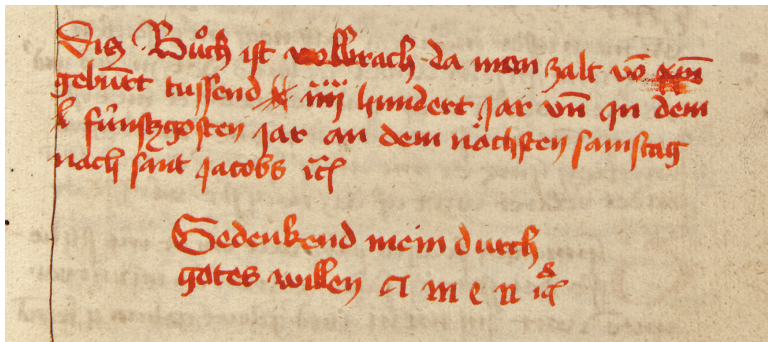 Diß Bůch ist vollbrach da man zalt vō xp̄i
geburt tussend iiij hundert jar vn̄ jn dem
fúnfczgosten jar an dem nächsten samstag
nach sant jacobs ⁊c̄
Gedenkend mein durch
gotes willen A m e n ⁊c̄